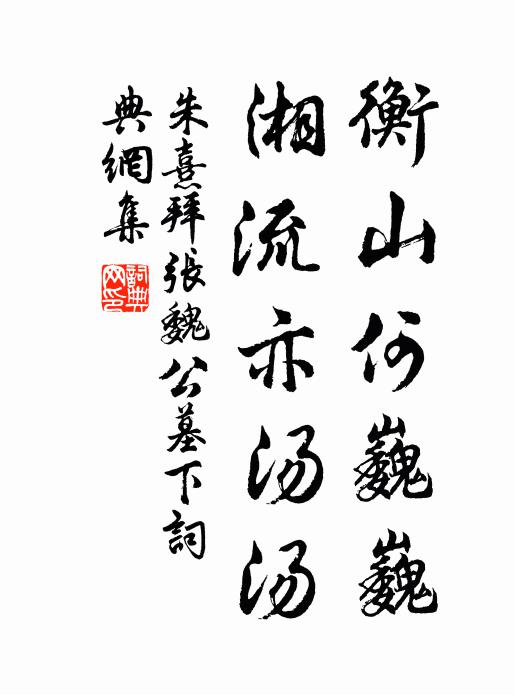 衡山何巍巍
湘流亦汤汤
朱熹拜張魏公墓下詞
典網集
詞典网印